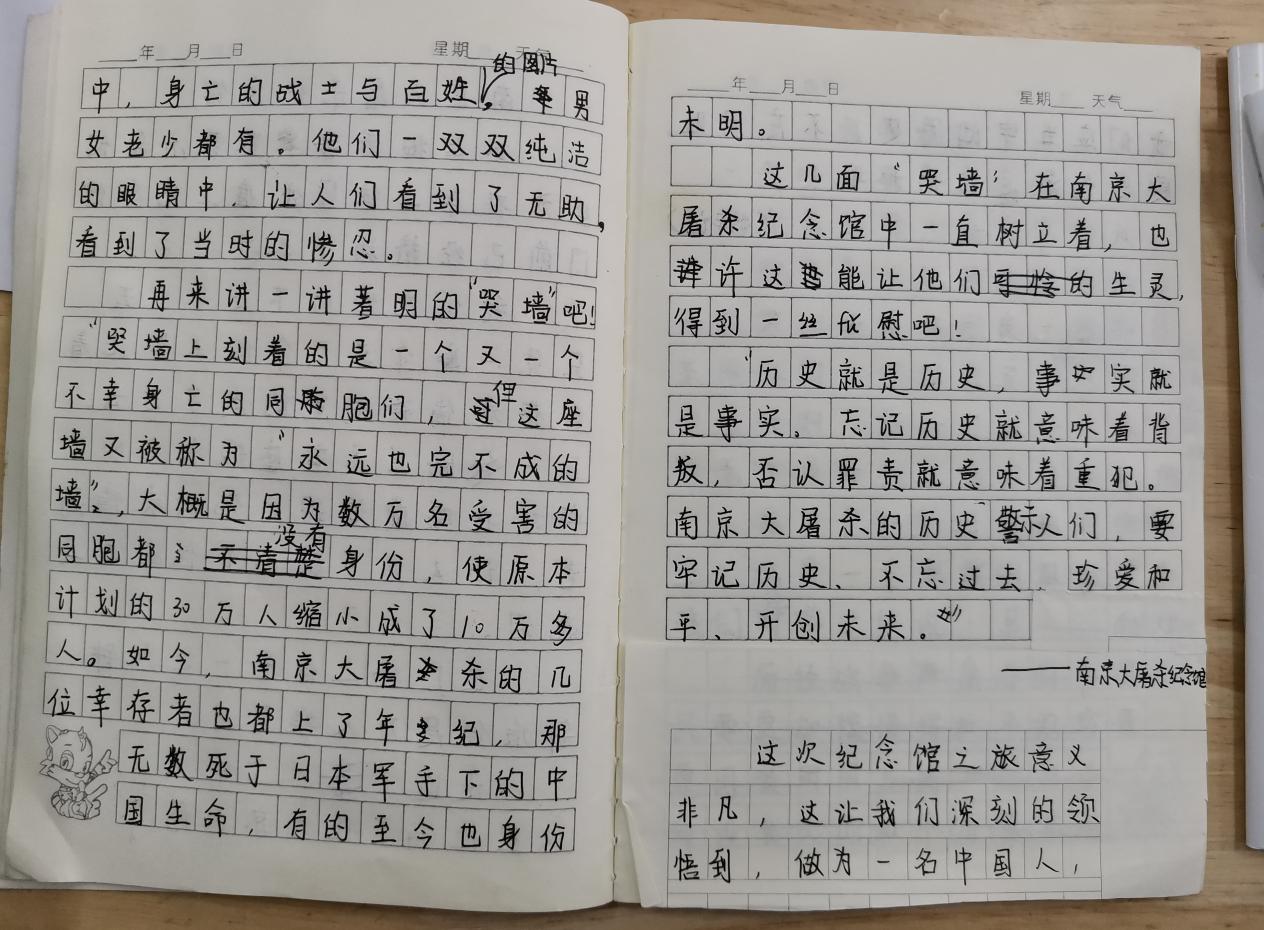 年 月 日 星期 天气
的图片
中，身亡的战士与百姓，男
女老少都有。他们一双双纯洁
的眼睛中，让人们看到了无助，
看到了当时的惨忍。
再来讲一讲著明的“哭墙”吧！
“哭墙上刻着的是一个又一个
但
不幸身亡的同胞们，这座
墙又被称为“永远也完不成的
墙”，大概是因为数万名受害的
没有
同胞都身份，使原本
计划的30万人缩小成了10万多
人。如今，南京大屠杀的几
位幸存者也都上了年纪，那
无数死于日本军手下的中
国生命，有的至今也身份
年 月 日 星期 天气
未明。
这几面“哭墙”在南京大
屠杀纪念馆中一直树立着，也
许这能让他们的生灵，
得到一丝慰吧！
“历史就是历史，事实就
是事实。忘记历史就意味着背
叛，否认罪责就意味着重犯。
南京大屠杀的历史警示人们，要
牢记历史、不忘过去、珍爱和
平、开创未来。”
——南京大屠杀纪念馆
这次纪念馆之旅意义
非凡，这让我们深刻的领
悟到，做为一名中国人，